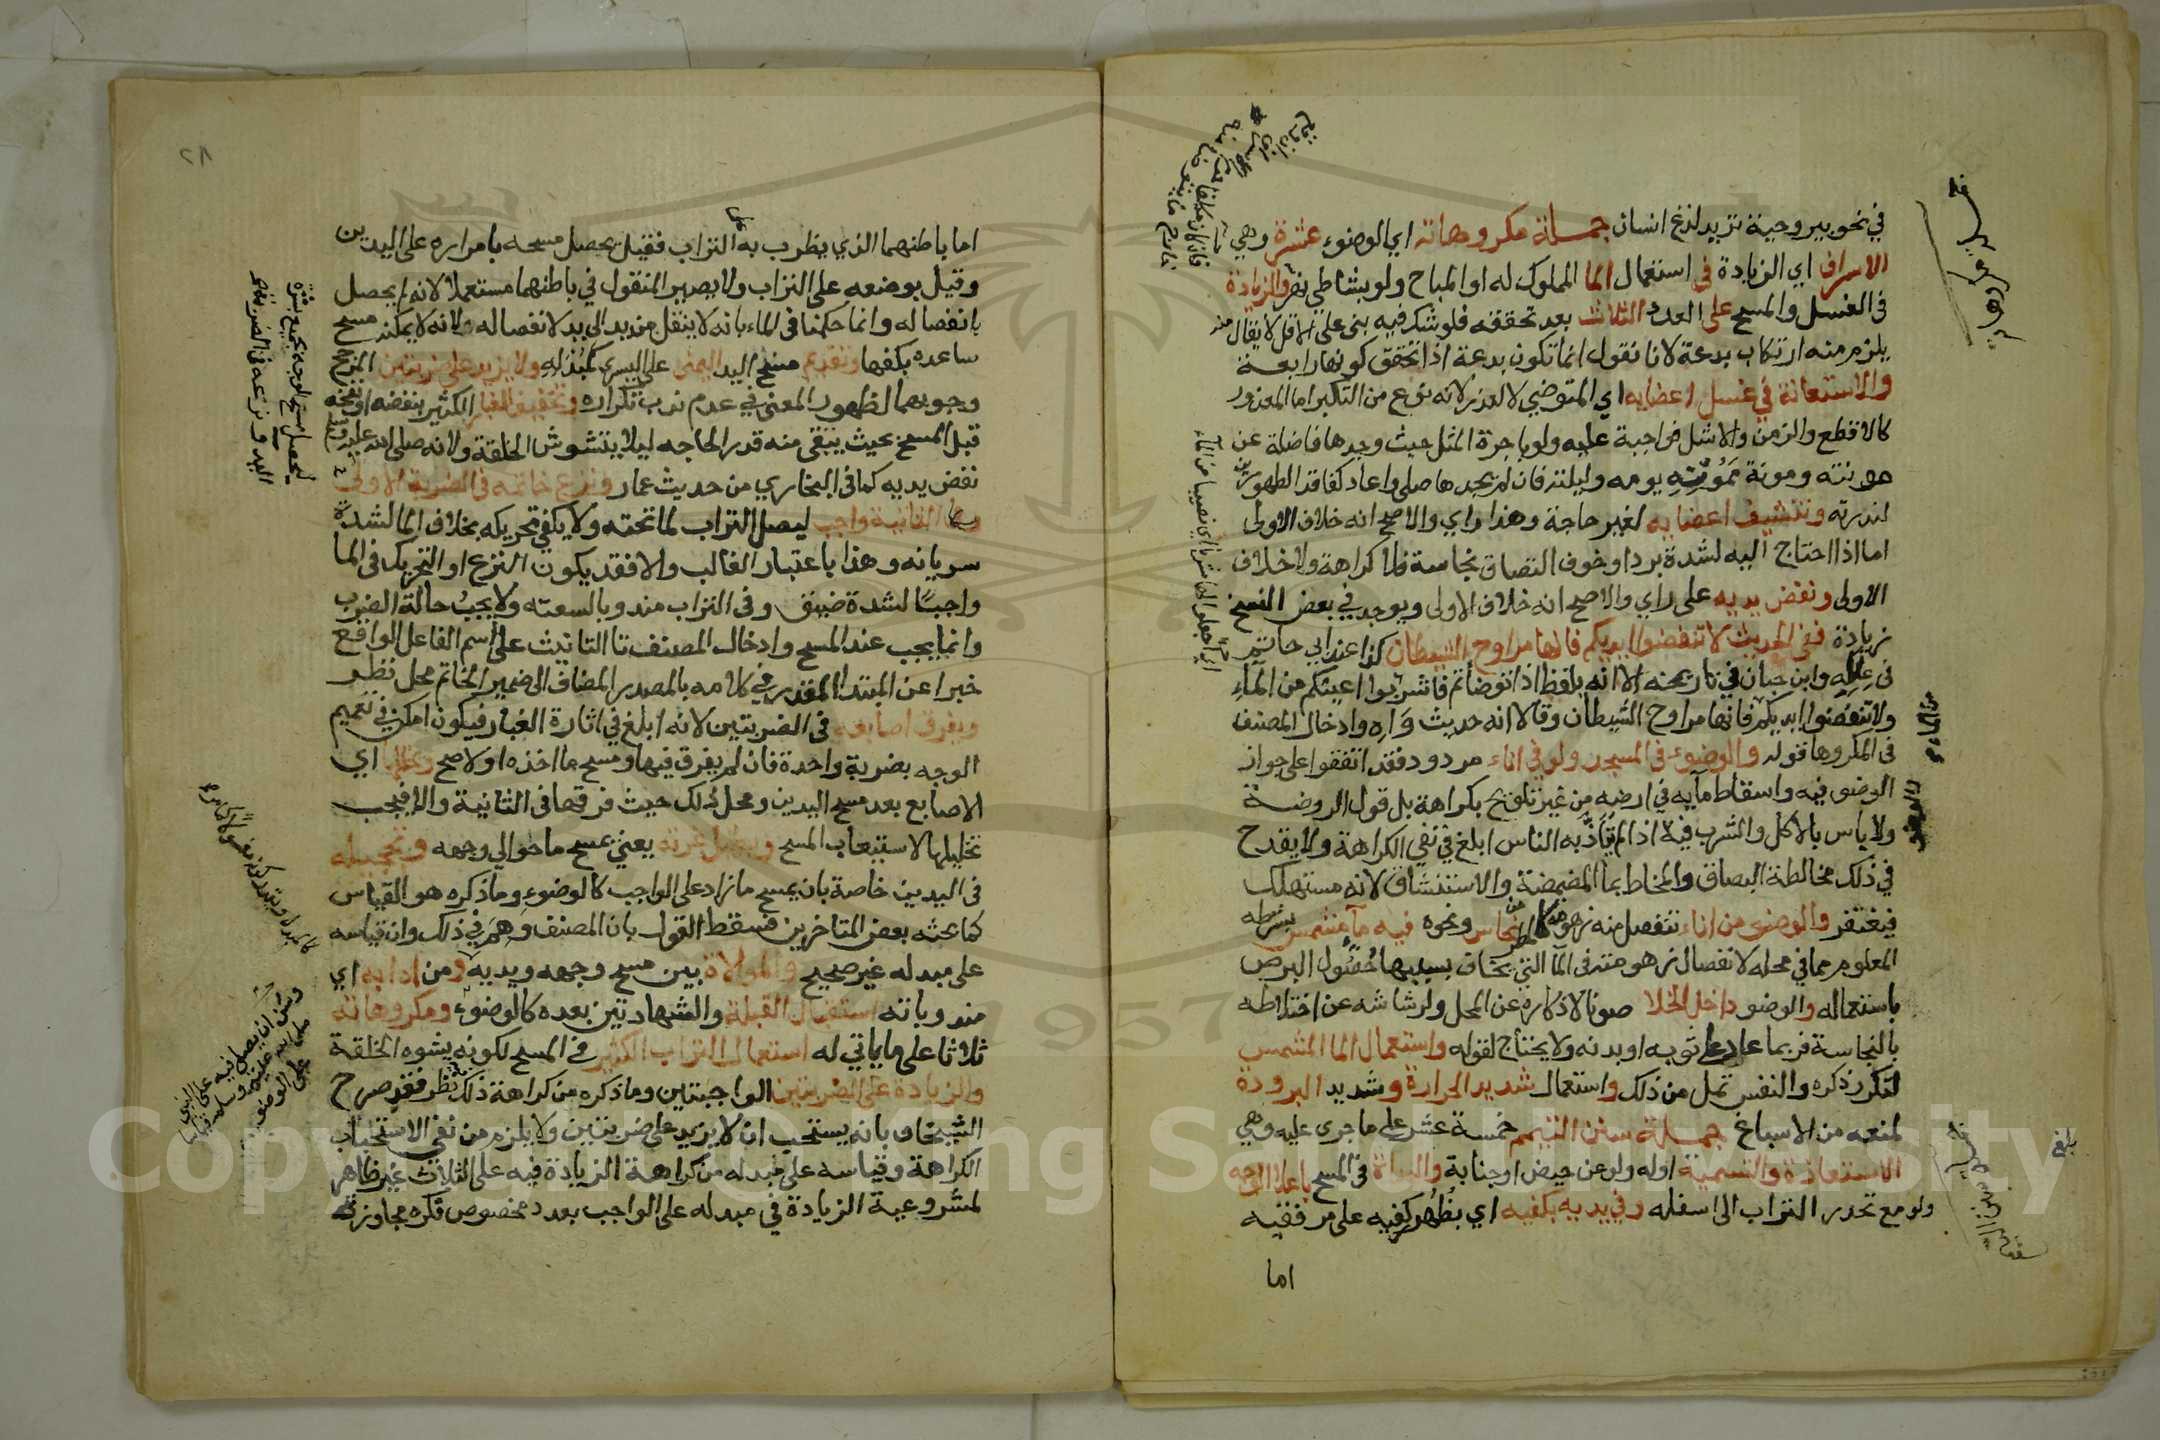 في نحو بير وحية تريد لدغ انسان جملة مكروهاته اي الوضوء عشرة وهي
الاسراف اي الزيادة في استعمال الما المملوك له او المباح ولو بشاطي نهر والزيادة
في الغسل والمسح على العدد الثلاث بعد تحققه فلو شك فيه بنى على الاقل لا يقال
يلزم منه ارتكاب بدعة لانا نقول انما تكون بدعة اذا تحقق كونها رابعة
والاستعانة في غسل اعضايه اي المتوضي لا لعذر لانه نوع من التكبر اما المعذور
كالاقطع والزمن والاشل فواجبة عليه ولو باجرة المثل حيث وجدها فاضلة عن
مونته ومونة ممونه يومه وليلته فان لم يجدها صلى واعاد كفاقد الطهورين
لندرته وتنشيف اعضايه لغير حاجة وهذا راي والاصح انه خلاف الاولى
اما اذا احتاج اليه لشدة برد او خوف التصاق نجاسة فلا كراهة ولا خلاف
الاولى ونفض يديه على راي والاصح انه خلاف الاولى ويوجد في بعض النسخ
زيادة ففي الحديث لا تنفضوا ايديكم فانها مراوح الشيطان كذا عند ابي حاتم
في علله وابن حبان في تاريخه الا انه بلفظ اذا توضاتم فاشربوا اعينكم من الماء
ولا تنفضوا ايديكم فانها مراوح الشيطان وقالا انه حديث واه وادخال المصنف
في المكروها قوله والوضوء في المسجد ولو في اناء مردود فقد اتفقوا على جواز
الوضو فيه واسقاط مايه في ارضه من غير تلويح بكراهة بل قول الروضة
ولا باس بالاكل والشرب فيه اذا لم يتاذ به الناس ابلغ في نفي الكراهة ولا يقدح
في ذلك مخالطة البصاق والمخاط بما المضمضة والاستنشاق لانه مستهلك
فيغتفر والوضوء من اناء تنفصل منه زهومة كالنحاس ونحوه فيه ماء مشمس بشرطه
المعلوم مما في محله لانفصال زهومته في الما التي يخاف بسببها حصول البرص
باستعماله والوضو داخل الخلا صونا لاذكاره عن المحل ولرشاشه عن اختلاطه
بالنجاسة فربما عاد على ثوبه او بدنه ولا يحتاج لقوله واستعمال الما المشمس
لتكرر ذكره والنفس تمل من ذلك واستعمال شديد الحرارة وشديد البرودة
لمنعه من الاسباغ جملة سنن التيمم خمسة عشر على ما جرى عليه وهي
الاستعاذة والتسمية اوله ولو عن حيض او جنابة والبداة في المسح باعلا الوجه
ولو مع تحدر التراب الى اسفله وفي يديه بكفيه اي بظهر كفيه على مرفقيه
اما
بلغ
٨٢
اما باطنهما الذي يضرب به التراب فقيل يحصل مسحه بامراره على اليدين
وقيل بوضعه على التراب ولا يصير المنقول في باطنهما مستعملا لانه يحصل
بانفصاله وانما حكمنا في الماء بانه لا ينتقل من يد الى يد لانفصاله ولانه لا يمكنه مسح
ساعده بكفها وتقديم مسح اليد اليمنى على اليسرى كمبدله ولا يزيد على ضربتين المرجح
وجوبهما لظهور المعنى في عدم ندب تكراره وتخفيف الغبار الكثير بنفضه او نفخه
قبل المسح بحيث يبقى منه قدر الحاجه ليلا يتشوش الخلقة ولانه صلى الله عليه وسلم
نفض يديه كما في البخاري من حديث عمار ونزع خاتمه في الضربة الاولى
وفي الثانية واجب ليصل التراب لما تحته ولا يكفي تحريكه بخلاف الما لشدة
سريانه وهذا باعتبار الغالب والا فقد يكون النزع او التحريك في الما
واجبا لشدة ضيق وفي التراب مندوبا لسعته ولا يجب حالة الضرب
وانما يجب عند المسح وادخال المصنف تا التانيث على اسم الفاعل الواقع
خبرا عن المبتدا المقدر في كلامه بالمصدر المضاف الى ضمير الخاتم محل نظر
ويفرق اصابعه في الضربتين لانه ابلغ في اثارة الغبار فيكون امكن في تعميم
الوجه بضربة واحدة فان لم يفرق فيها ومسح ما اخذه اولا صح وتخليل اي
الاصابع بعد مسح اليدين ومحل ذلك حيث فرقها في الثانية والا فيجب
تخليلها لاستيعاب المسح ويطيل غرته يعني يمسح ما حوالي وجهه وتحجيله
في اليدين خاصة بان يمسح ما زاد على الواجب كالوضوء وما ذكره هو القياس
كما بحثه بعض المتاخرين فسقط القول بان المصنف وهم في ذلك وان قياسه
على مبدله غير صحيح والموالاة بين مسح وجهه ويديه ومن ادابه اي
مندوباته استقبال القبلة والشهادتين بعده كالوضوء ومكروهاته
ثلاثا على ما ياتي له استعمال التراب الكثير في المسح لكونه يشوه الخلقة
والزيادة على الضربتين الواجبتين وما ذكره من كراهة ذلك نظر فقد صرح
الشيخان بانه يستحب ان لا يزيد على ضربتين ولا يلزم من نفي الاستحباب
الكراهة وقياسه على مبدله من كراهة الزيادة فيه على الثلاث غير ظاهر
لمشروعية الزيادة في مبدله على الواجب بعدد مخصوص فكره مجاوزته
ليحصل مسح الوجه بجميع بشرة
اليد ونزعه في الضربة
Copyright © King Saud University
1957